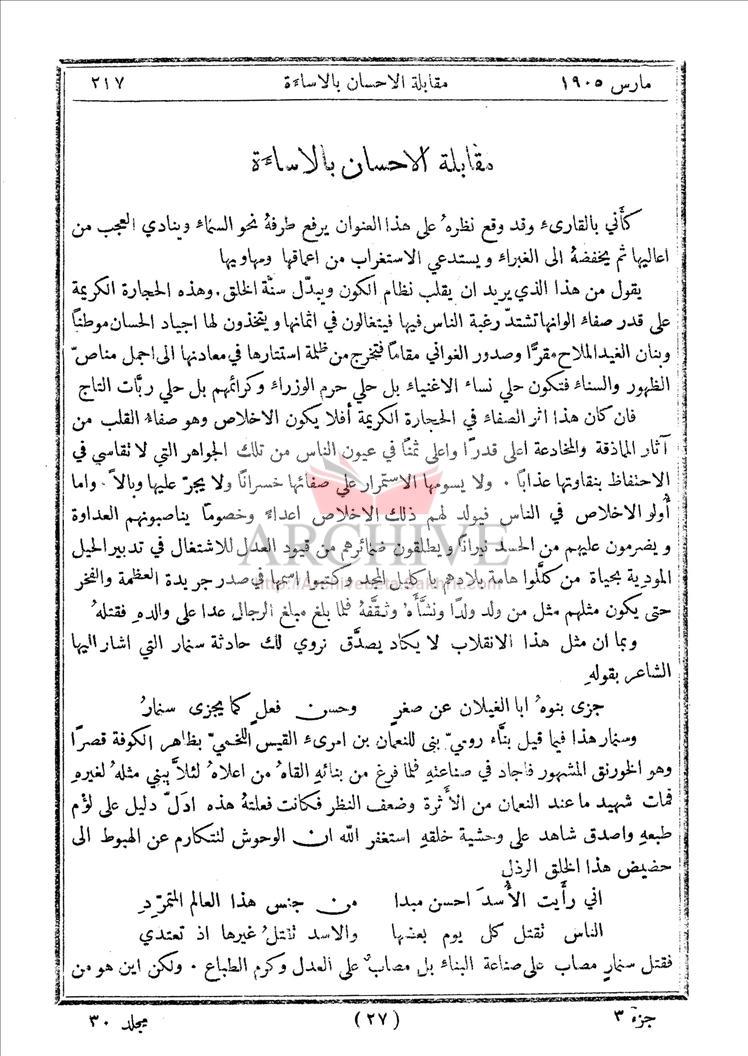 مارس ١٩٠٥ مقابلة الاحسان بالاساءة ٢١٧
مقابلة الاحسان بالاساءة
كأَني بالقارىء وقد وقع نظرهُ على هذا العنوان يرفع طرفهُ نحو السماء وينادي العجب من
اعاليها ثم يخفضهُ الى الغبراء ويستدعي الاستغراب من اعماقها ومهاويها
يقول من هذا الذي يريد ان يقلب نظام الكون ويبدّل سنّة الخلق. وهذه الحجارة الكريمة
على قدر صفاء الوانها تشتدّ رغبة الناس فيها فيتغالون في اثمانها ويتخذون لها اجياد الحسان موطناً
وبنان الغيد الملاح مقرًّا وصدور الغواني مقاماً فتخرج من ظلمة استتارها في معادنها الى اجمل مناصّ
الظهور والسناء فتكون حلي نساء الاغنياء بل حلي حرم الوزراء وكرائمهم بل حلي ربَّات التاج
فان كان هذا اثر الصفاء في الحجارة الكريمة أفلا يكون الاخلاص وهو صفاء القلب من
آثار المماذقة والمخادعة اعلى قدراً واعلى ثمناً في عيون الناس من تلك الجواهر التي لا تقاسي في
الاحتفاظ بنقاوتها عذاباً . ولا يسومها الاستمرار على صفائها خسراناً ولا يجرّ عليها وبالاً . واما
أولو الاخلاص في الناس فيولد لهم ذلك الاخلاص اعداءً وخصوماً يناصبونهم العداوة
ويضرمون عليهم من الحسد نيراناً ويطلقون ضمائرهم من قيود العدل للاشتغال في تدبير الحيل
المودية بحياة من كلَّلوا هامة بلادهم باكليل المجد وكتبوا اسمها في صدر جريدة العظمة والفخر
حتى يكون مثلهم مثل من ولد ولداً ونشَّأَهُ وثقَّفهُ فلما بلغ مبلغ الرجال عدا على والدهِ فقتلهُ
وبما ان مثل هذا الانقلاب لا يكاد يصدَّق نروي لك حادثة سنمار التي اشار اليها
الشاعر بقولهِ
جزى بنوهُ ابا الغيلان عن صغرٍ وحسن فعلٍ كما يجزى سنمارُ
وسنمار هذا فيما قيل بنَّاء روميّ بنى للنعمان بن امرىء القيس اللخميّ بظاهر الكوفة قصراً
وهو الخورنق المشهور فاجاد في صناعتهِ فلما فرغ من بنائهِ القاهُ من اعلاهُ لئلاَّ يبني مثلهُ لغيرهِ
فمات شهيد ما عند النعمان من الأَثرة وضعف النظر فكانت فعلتهُ هذه ادلّ دليل على لؤم
طبعهِ واصدق شاهد على وحشية خلقهِ استغفر الله ان الوحوش لتتكارم عن الهبوط الى
حضيض هذا الخلق الرذل
اني رأَيت الأُسدَ احسن مبدا من جنس هذا العالم المتمرّدِ
الناس تقتل كل يوم بعضها والاسد تقتلُ غيرها اذ تعتدي
فقتل سنمارٍ مصاب على صناعة البناء بل مصابٌ على العدل وكرم الطباع . ولكن اين هو من
جزء ٣ (٢٧) مجلد ٣٠
ARCHIVE